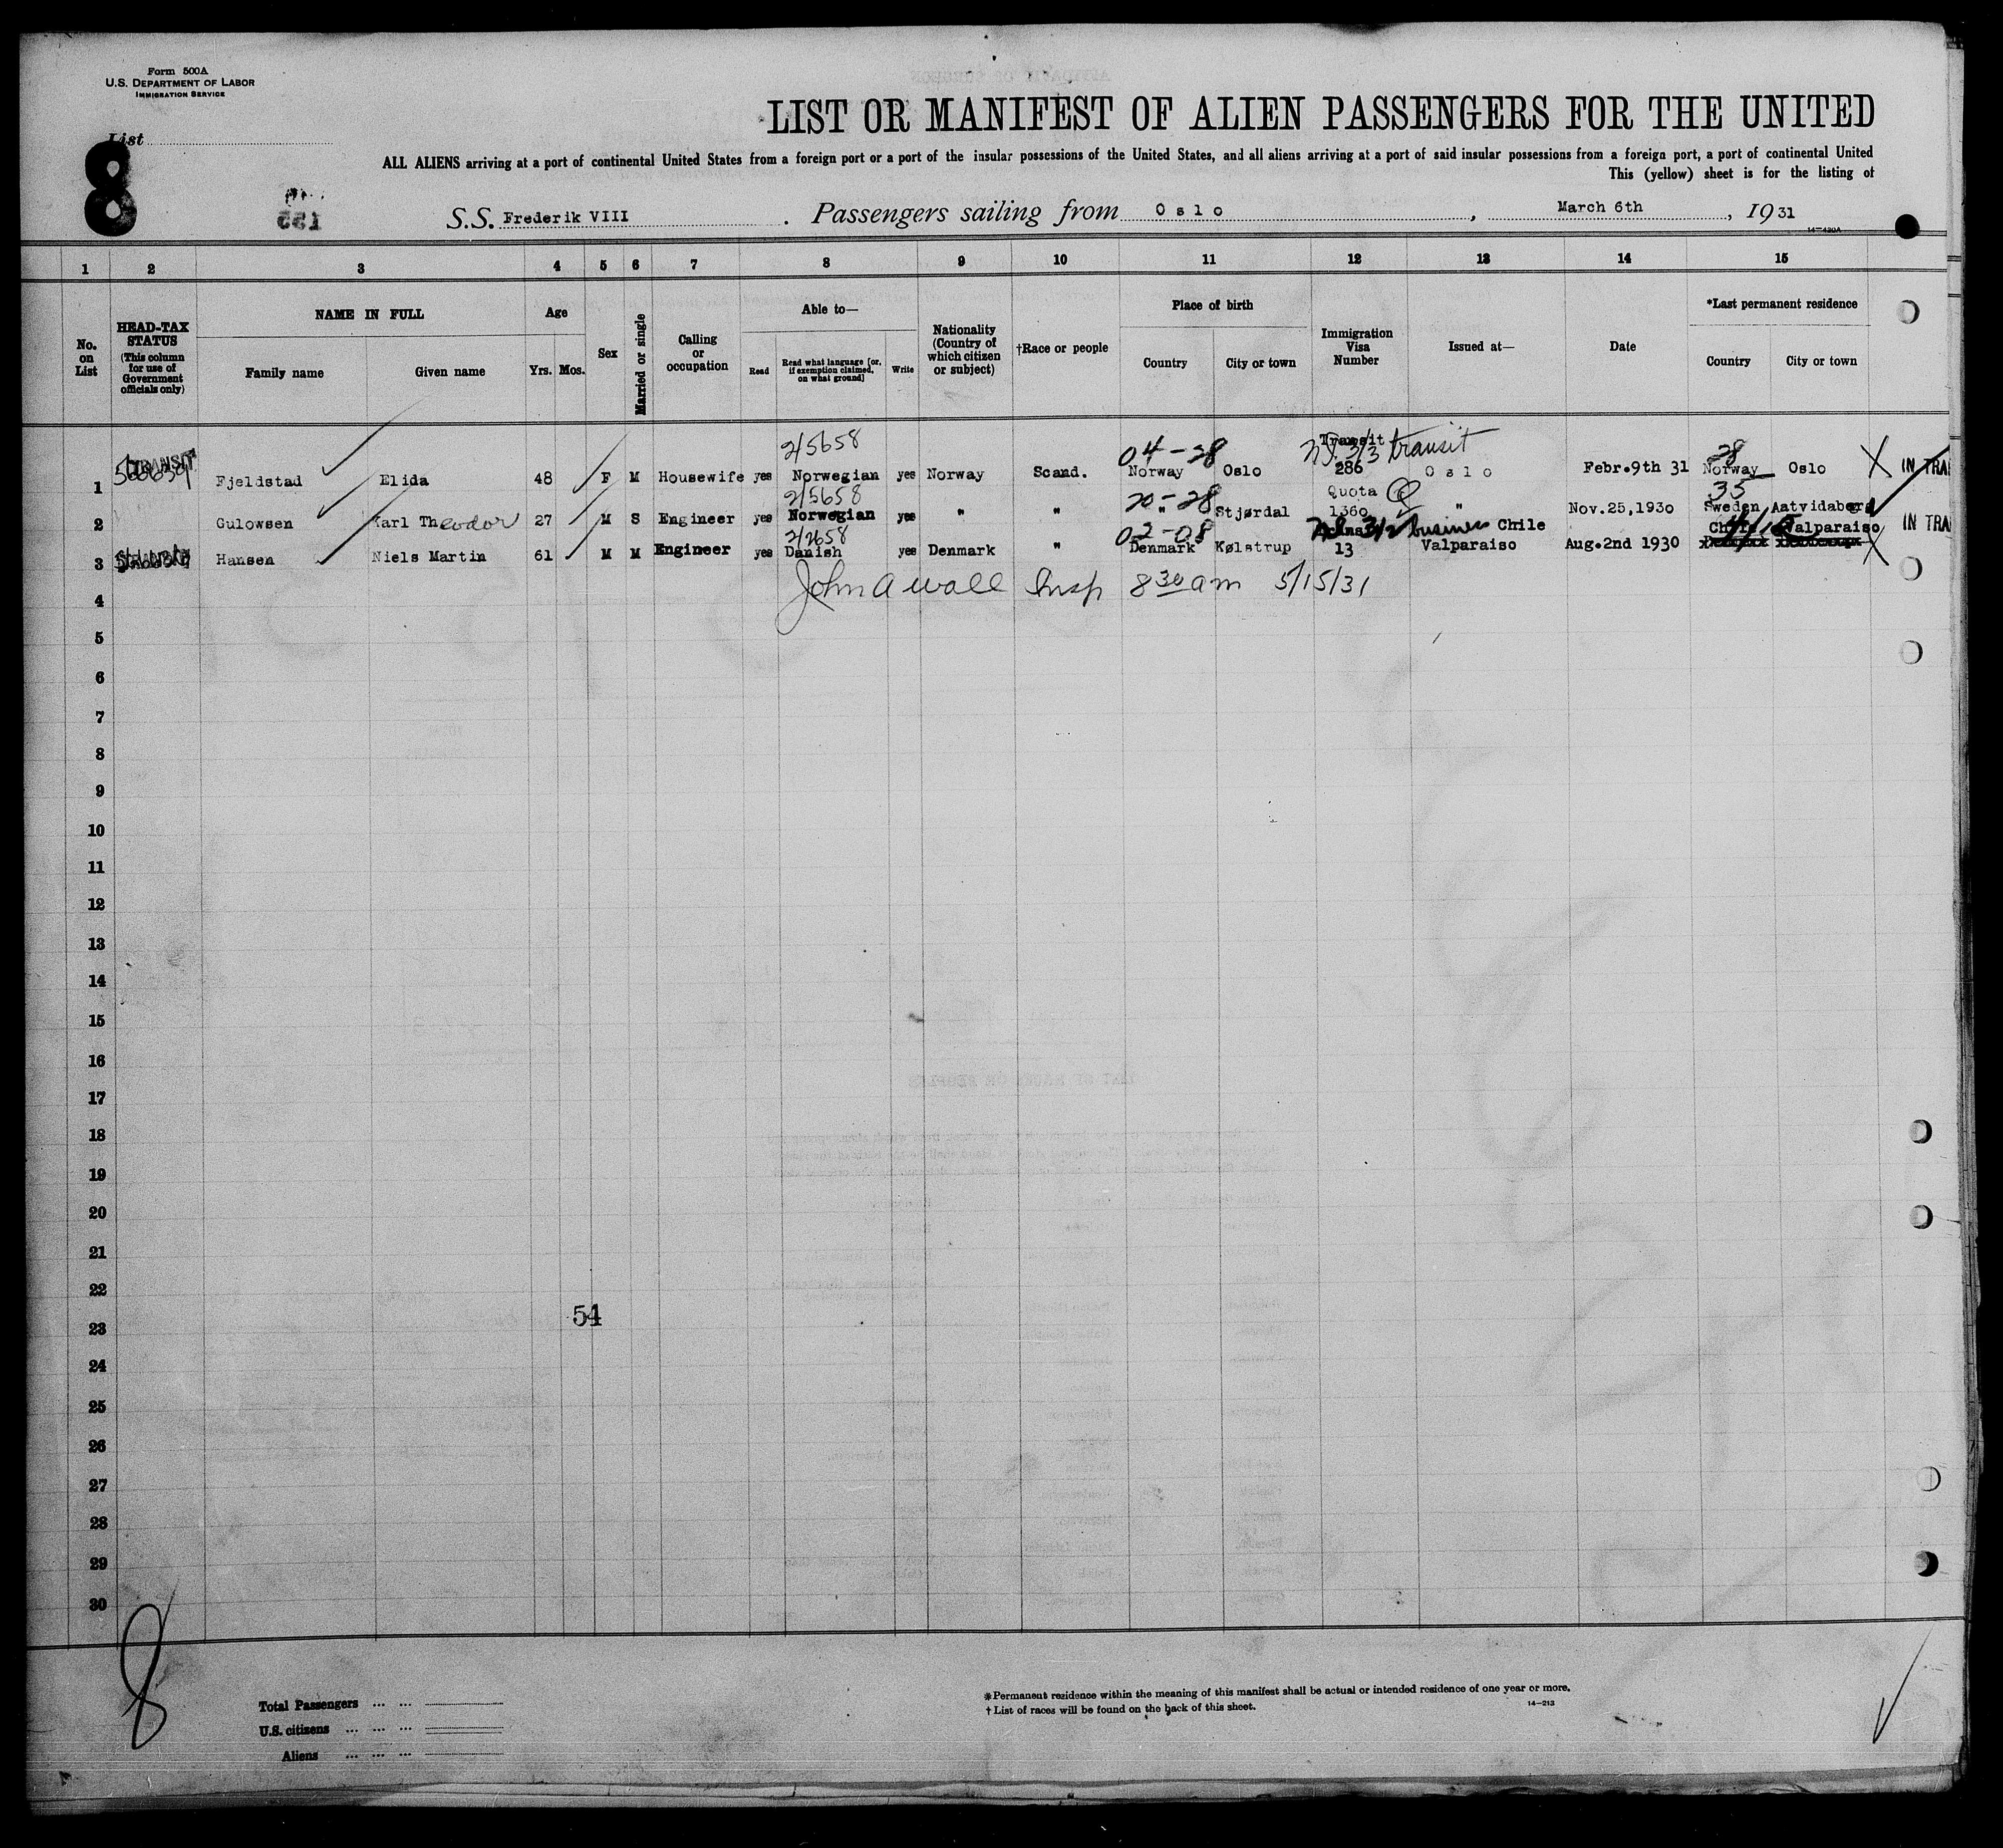 Form 500A
U.S. DEPARTMENT OF LABOR
IMMIGRATION SERVICE
List
8
155
LIST OR MANIFEST OF ALIEN PASSENGERS FOR THE UNITED
ALL ALIENS arriving at a port of continental United States from a foreign port or a port of the insular possessions of the United States, and all aliens arriving at a port of said insular possessions from a foreign port, a port of continental United
This (yellow) sheet is for the listing of
S.S. Frederik VIII . Passengers sailing from Oslo , March 6th , 1931
14-420A
1 2 3 4 5 6 7 8 9 10 11 12 13 14 15
No. on List
HEAD-TAX STATUS (This column for use of Government officials only)
NAME IN FULL
Family name Given name
Age
Yrs. Mos.
Sex
Married or single
Calling or occupation
Able to—
Read Read what language [or, if exemption claimed, on what ground] Write
Nationality (Country of which citizen or subject)
†Race or people
Place of birth
Country City or town
Immigration Visa Number
Issued at—
Date
*Last permanent residence
Country City or town
2/5658 04-28 Transit 3/3 transit 28
1 TRANSIT Fjeldstad Elida 48 F M Housewife yes Norwegian yes Norway Scand. Norway Oslo 286 Oslo Febr.9th 31 Norway Oslo X IN TRA
2/5658 20-28 Quota 35
2 Gulowsen Karl Theodor 27 M S Engineer yes Norwegian yes " " " Stjørdal 1360 " Nov.25,1930 Sweden Aatvidaberg
2/2658 02-08 3/2 business Chile Valparaiso IN TRA
3 Hansen Niels Martin 61 M M Engineer yes Danish yes Denmark " Denmark Kølstrup 13 Valparaiso Aug.2nd 1930 X
4 John A Wall Insp 8 30 am 5/15/31
5
6
7
8
9
10
11
12
13
14
15
16
17
18
19
20
21
22
54
23
24
25
26
27
28
29
30
8
Total Passengers ... ...
U.S. citizens ... ... ...
Aliens ... ... ...
*Permanent residence within the meaning of this manifest shall be actual or intended residence of one year or more.
† List of races will be found on the back of this sheet.
14-213